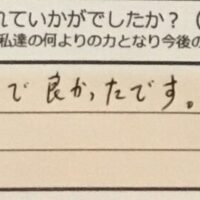 れていかがでしたか？（
私達の何よりの力となり今後の
で良かったです。